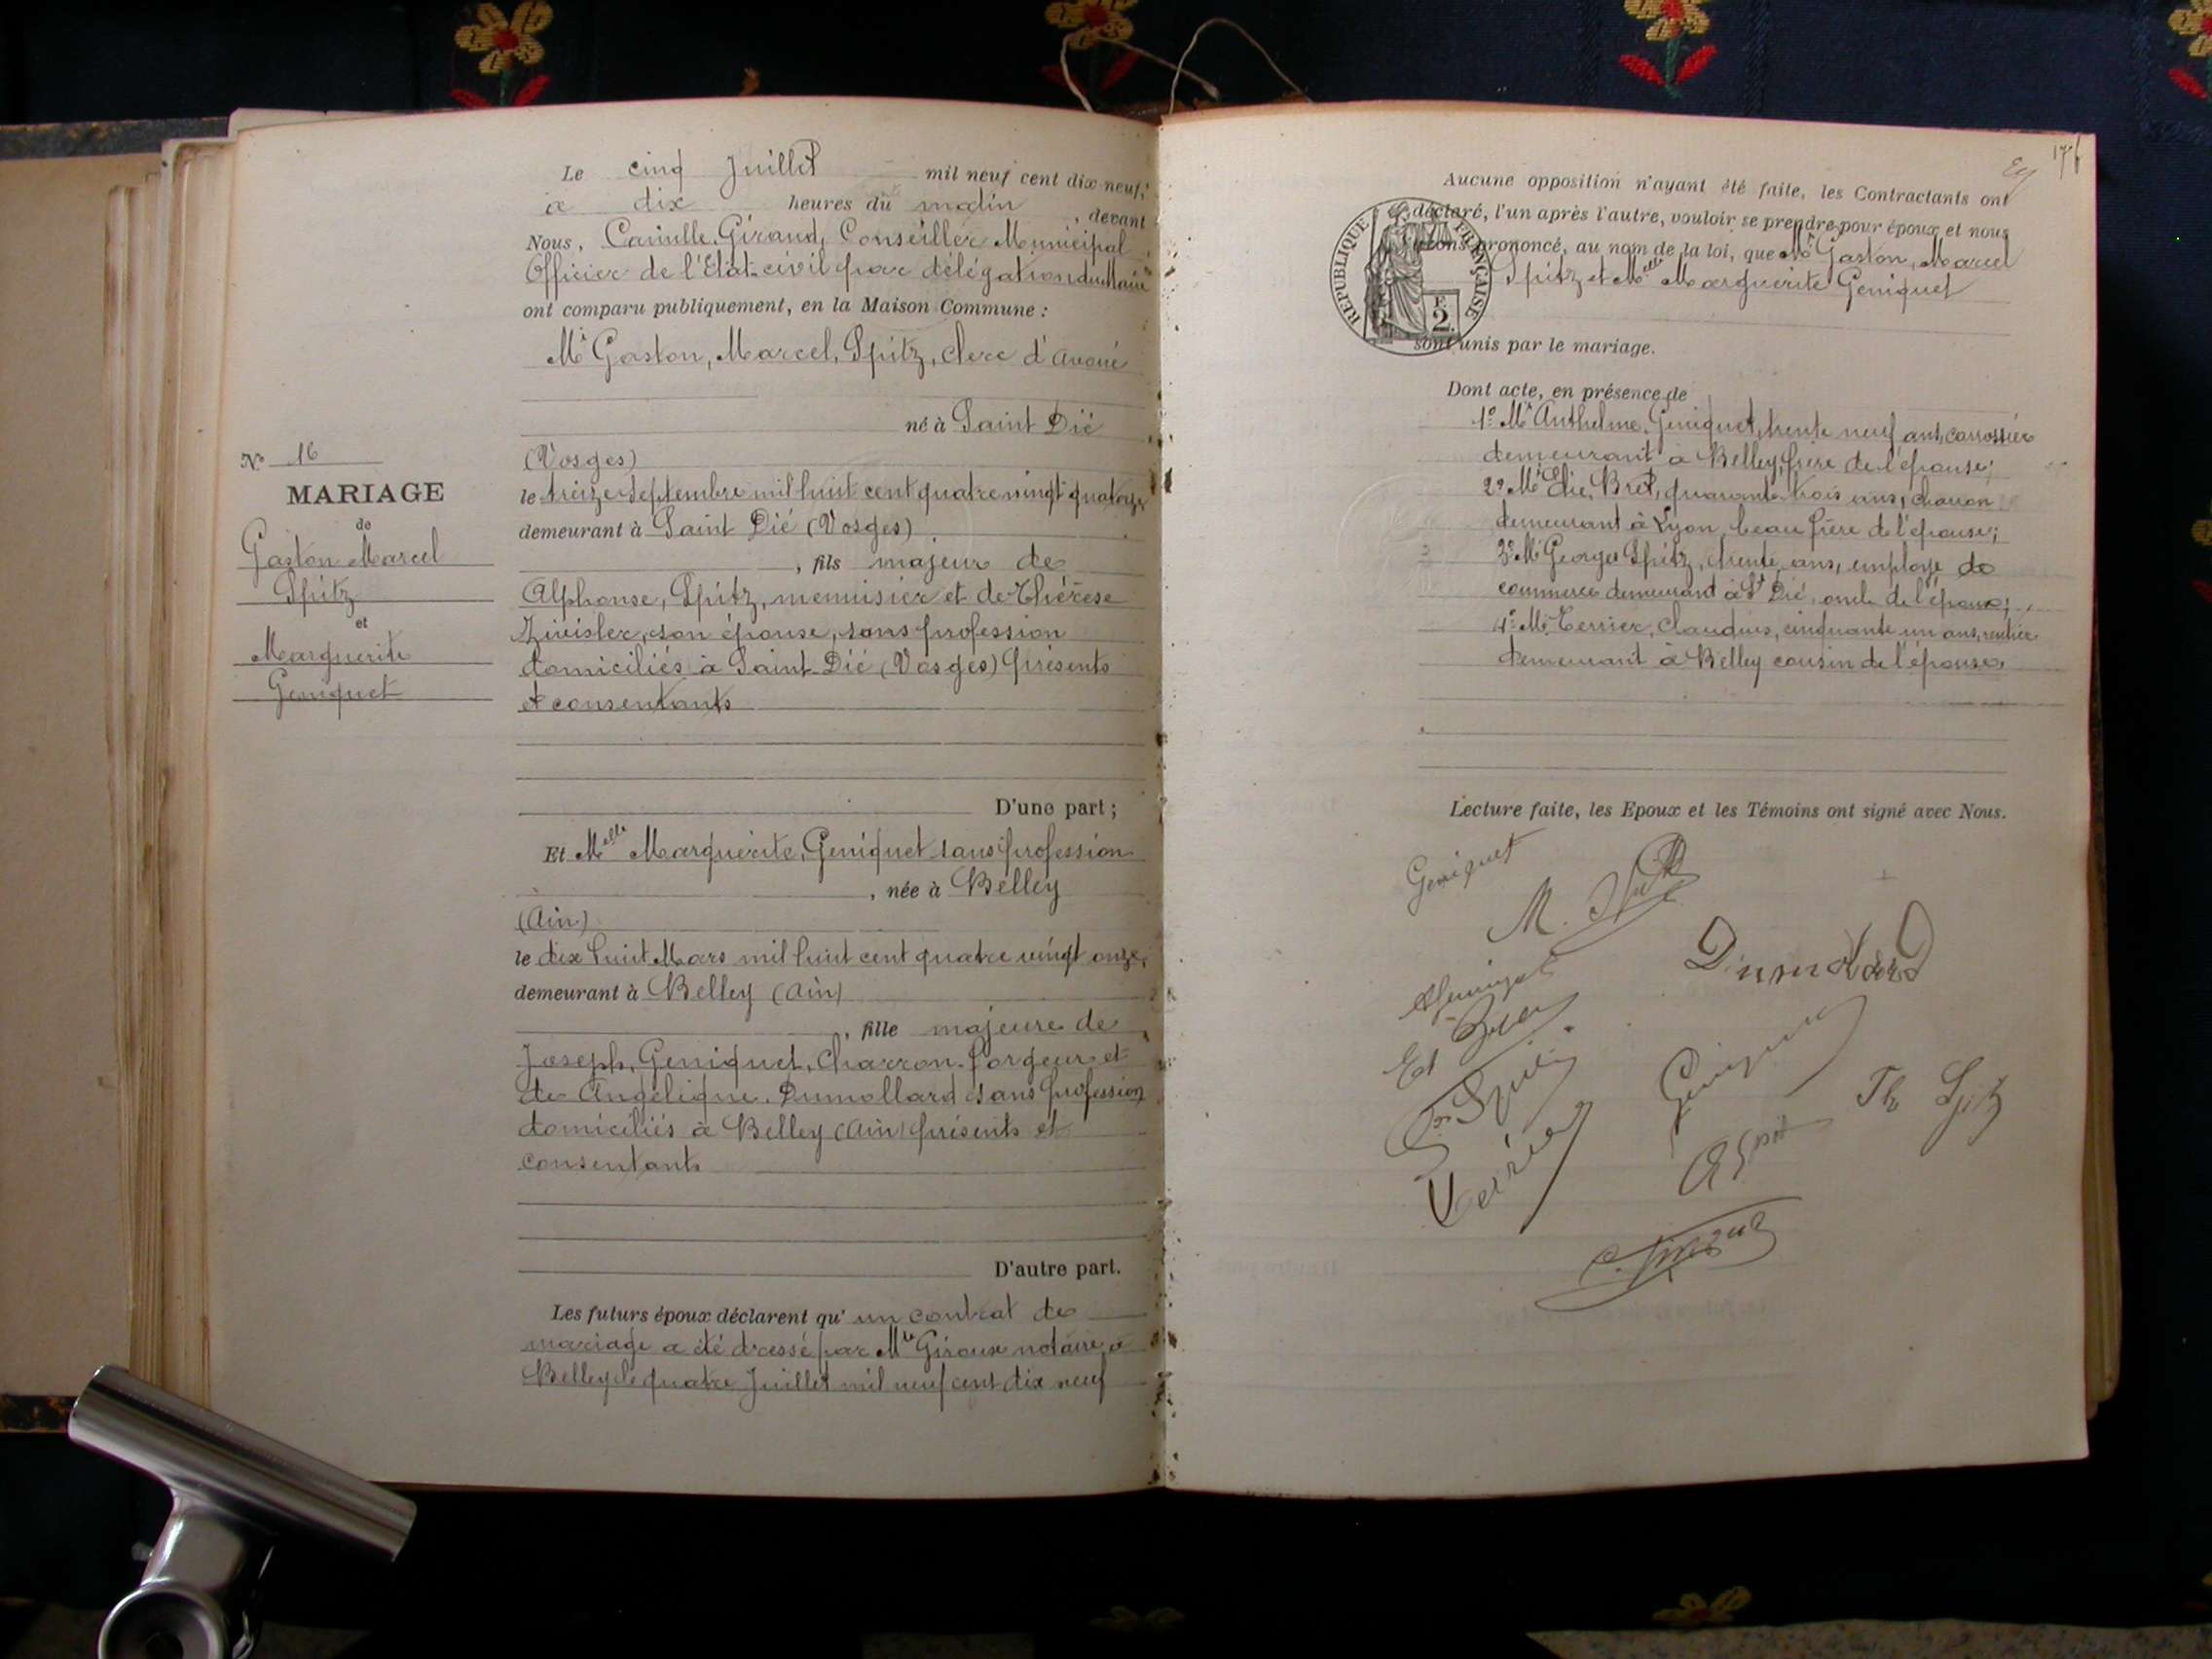 Le cinq Juillet mil neuf cent dix-neuf,
à dix heures du matin, devant
Nous, Camille, Giraud, Conseiller Municipal
Officier de l'Etat-civil par délégation du Maire
ont comparu publiquement, en la Maison Commune :
Mr Gaston, Marcel, Spitz, clerc d'avoué
né à Saint Dié
(Vosges)
le treize Septembre mil huit cent quatre vingt quatorze
demeurant à Saint Dié (Vosges)
, fils majeur de
Alphonse, Spitz, menuisier et de Thérèse
son épouse, sans profession
domiciliés à Saint-Dié (Vosges) présents
et consentants
D'une part ;
Et Melle Marguerite, Geniquet sans profession
, née à Belley
(Ain)
le dix huit Mars mil huit cent quatre vingt onze,
demeurant à Belley (Ain)
, fille majeure de
Joseph, Geniquet, Charron-forgeur et
de Angélique, Dumollard sans profession
domiciliés à Belley (Ain) présents et
consentants
D'autre part.
Les futurs époux déclarent qu' un contrat de
mariage a été dressé par Me Giroux notaire à
Belley le quatre Juillet mil neuf cent dix neuf
No 16
MARIAGE
de
Gaston Marcel
Spitz
et
Marguerite
Geniquet
176
Aucune opposition n'ayant été faite, les Contractants ont
déclaré, l'un après l'autre, vouloir se prendre pour époux et nous
avons prononcé, au nom de la loi, que Mr Gaston, Marcel
Spitz et Melle Marguerite Geniquet
sont unis par le mariage.
RÉPUBLIQUE FRANÇAISE
F.
2.
Dont acte, en présence de
1° Mr Anthelme, Geniquet, trente neuf ans, carrossier
demeurant à Belley, frère de l'épouse;
2° Mr Elie, Bret, quarante trois ans, charron
demeurant à Lyon, beau frère de l'épouse;
3° Mr Georges Spitz, trente ans, employé de
commerce demeurant à St Dié, oncle de l'époux;
4° Mr Terrier, Claudius, cinquante un ans, rentier
demeurant à Belley cousin de l'épouse
Lecture faite, les Epoux et les Témoins ont signé avec Nous.
Geniquet
M. Spitz
Th Spitz